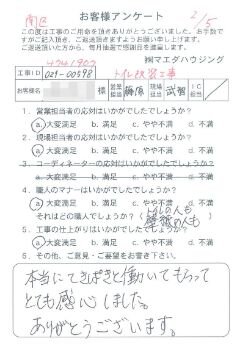 お客様アンケート
南区
2/5
この度は工事のご用命を頂きありがとうございました。お手数で
すがご記入頂き、ご返送頂きますようお願い申し上げます。
ご返送頂いた方から、毎月抽選で感謝日を進呈します。
4741902
㈱マエダハウジング
工事ID 021-00598 トイレ改装工事
お客様名 様 営業担当 現場担当 武智
1. 営業担当者の応対はいかがでしたでしょうか?
a.大変満足 b.満足 c.やや不満 d.不満
2. 現場担当者の応対はいかがでしたでしょうか?
a.大変満足 b.満足 c.やや不満 d.不満
3. コーディネーターの応対はいかがでしたでしょうか?
a.大変満足 b.満足 c.やや不満 d.不満
4. 職人のマナーはいかがでしたでしょうか?
a.大変満足 b.満足 c.やや不満 d.不満
それはどの職人でしょうか?
5. 工事の仕上がりはいかがでしたでしょうか?
a.大変満足 b.満足 c.やや不満 d.不満
6. その他、ご意見・ご要望をお書き下さい。
本当にてきぱきと働いてもらって
とても感心しました。
ありがとうございます。